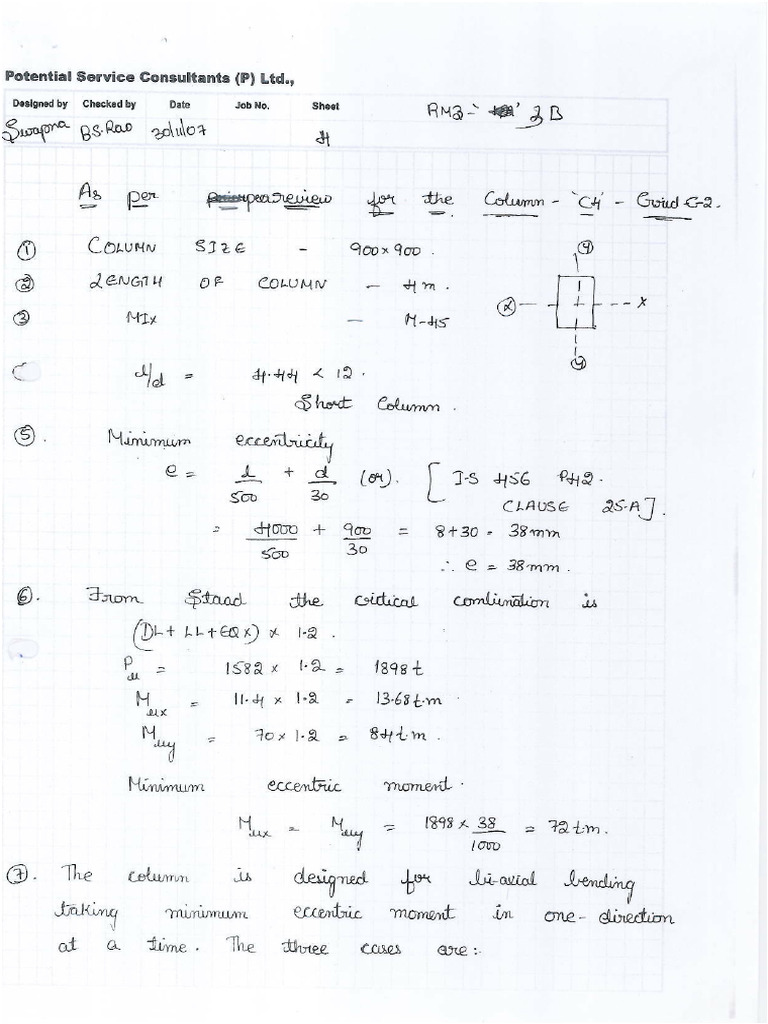 Potential Service Consultants (P) Ltd.,
Designed by Checked by Date Job No. Sheet
RM3-' ' 3B
Swapna BS.Rao 30/11/07 4
As per peer review for the Column - 'C4' - Grid G-2.
① COLUMN SIZE - 900x900.
② LENGTH OF COLUMN - 4m.
③ MIX - M-45
y
x x
y
l/d = 4.44 < 12.
Short Column.
⑤. Minimum eccentricity
e = l/500 + d/30 (or). [I.S 456 P42.
CLAUSE 25.A].
= 4000/500 + 900/30 = 8+30 = 38mm
∴ e = 38mm.
⑥. From Staad the critical combination is
(DL+LL+EQX) x 1.2.
Pu = 1582 x 1.2 = 1898t
Mux = 11.4 x 1.2 = 13.68t.m
Muy = 70x1.2 = 84t.m.
Minimum eccentric moment.
Mux = Muy = 1898 x 38/1000 = 72t.m.
⑦. The column is designed for bi-axial bending
taking minimum eccentric moment in one-direction
at a time. The three cases are:-